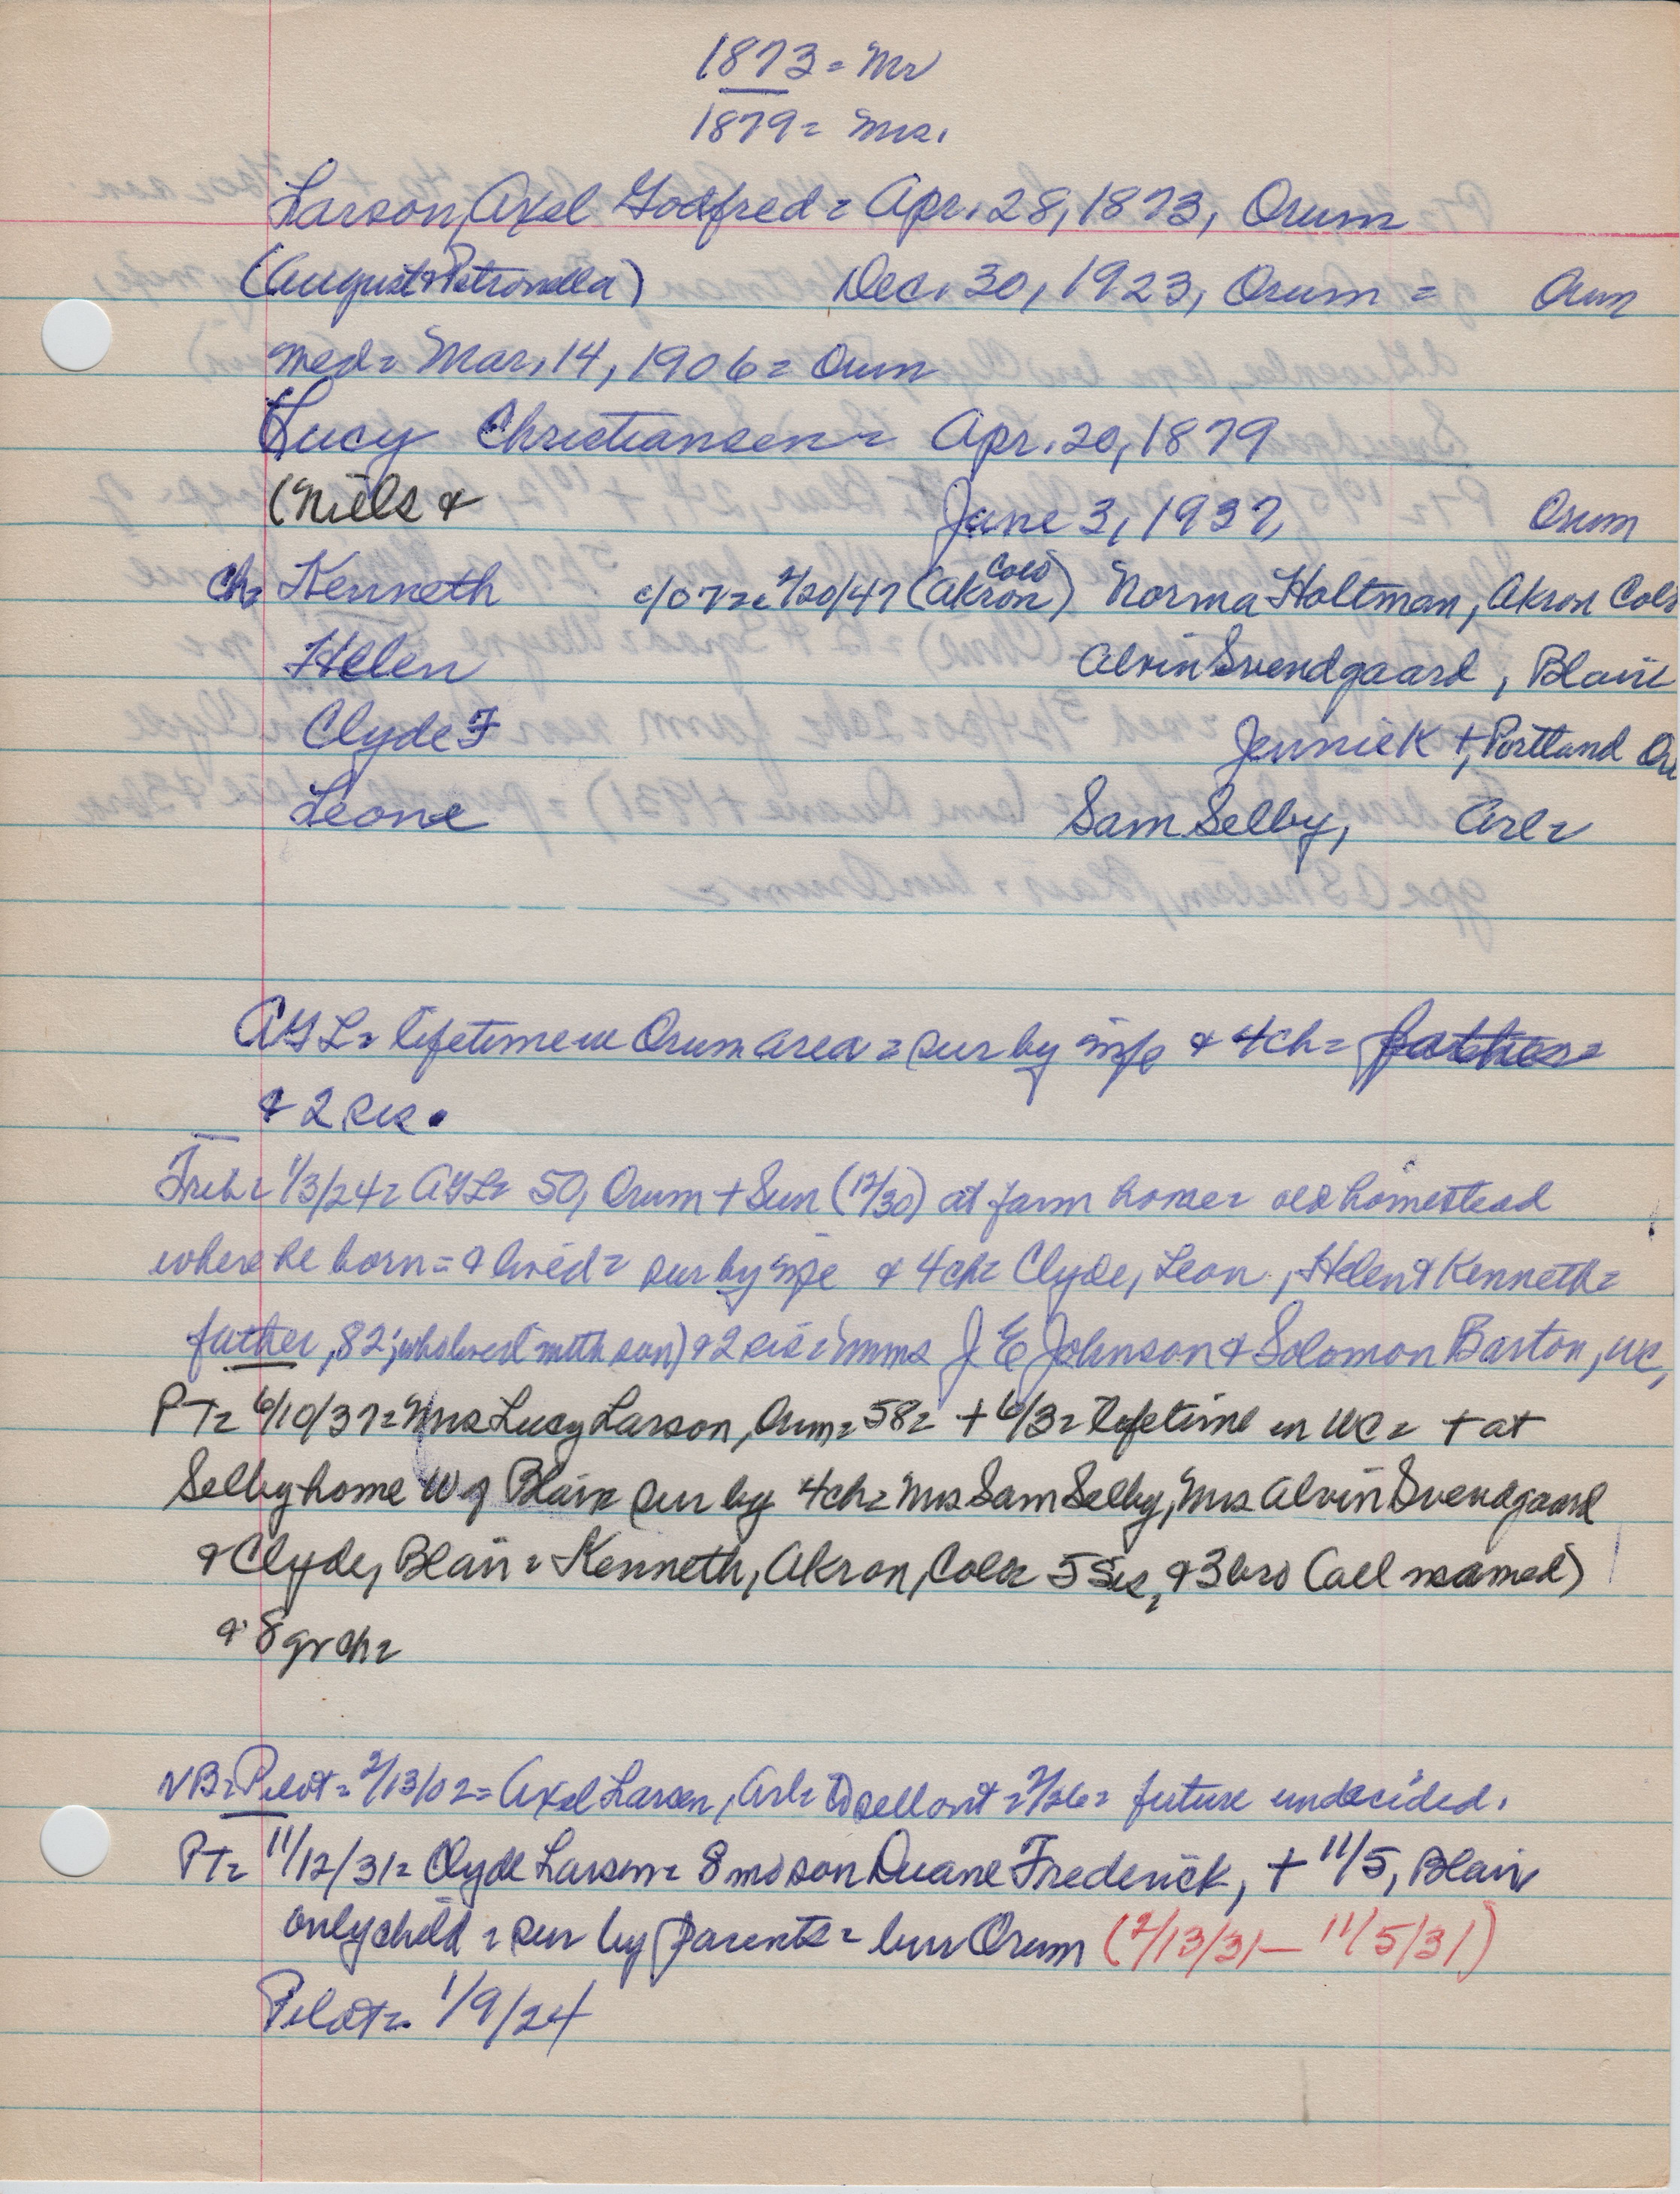 1873 = Mr
1879 = Mrs.
Larson, Axel Godfred = Apr. 28, 1873, Orum
(August & Petronella) Dec. 30, 1923, Orum = Orum
med = Mar. 14, 1906 = Orum
Lucy Christiansen = Apr. 20, 1879
(Niels & June 3, 1937, Orum
ch = Kenneth c/o 7 = 2/20/47 (Akron Colo) Norma Holtman, Akron Colo
Helen Alvin Svendgaard, Blair
Clyde F Jennie K +, Portland Ore
Leone Sam Selby, Arl =
AGL = lifetime in Orum area = sur by wife & 4 ch = father =
& 2 sis.
Trib = 1/3/24 = AGL = 50, Orum + Sun (12/30) at farm home = old homestead
where he born = & lived = sur by wife & 4 ch = Clyde, Leon, Helen & Kenneth =
father, 82; who lived with son) & 2 sis = Mmes J E Johnson & Solomon Barton, WC,
PT = 6/10/37 = Mrs Lucy Larson, Orum = 58 = + 6/3 = lifetime in WC = + at
Selby home W of Blair sur by 4 ch = Mrs Sam Selby, Mrs Alvin Svendgaard
& Clyde, Blair = Kenneth, Akron, Colo = 5 Sis, & 3 bro (all named)
& 8 gr ch =
NB = Pilot = 2/13/02 = Axel Larsen, Arl = to sell out = 2/26 = future undecided.
PT = 11/12/31 = Clyde Larsen = 8 mo son Duane Frederick, + 11/5, Blair
only child = sur by parents = bur Orum (2/13/31 - 11/5/31)
Pilot = 1/9/24